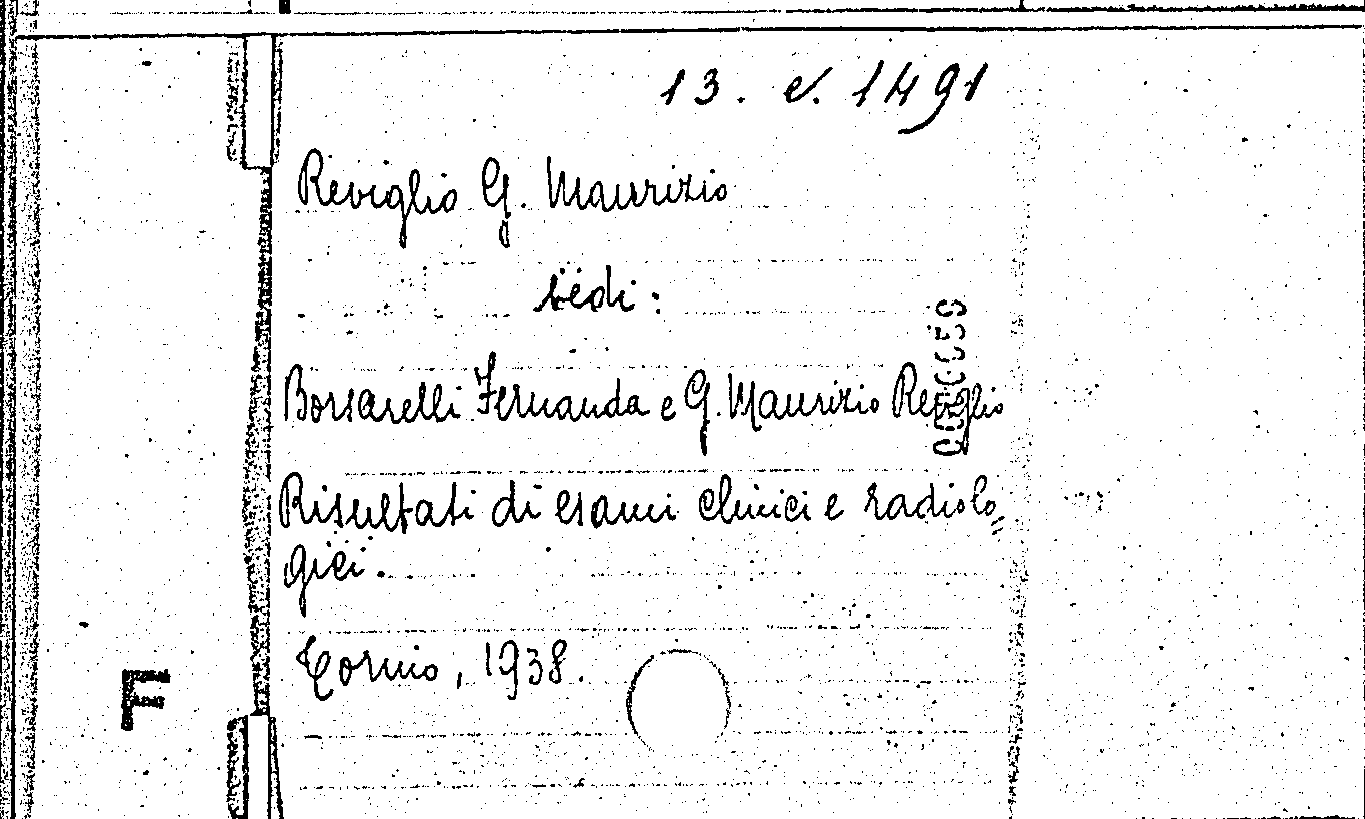 13. e. 1491
Reviglio G. Maurizio
vedi:
Borsarelli Fernanda e G. Maurizio Reviglio
Risultati di esami clinici e radiolo„
gici.
Torino, 1938.
F